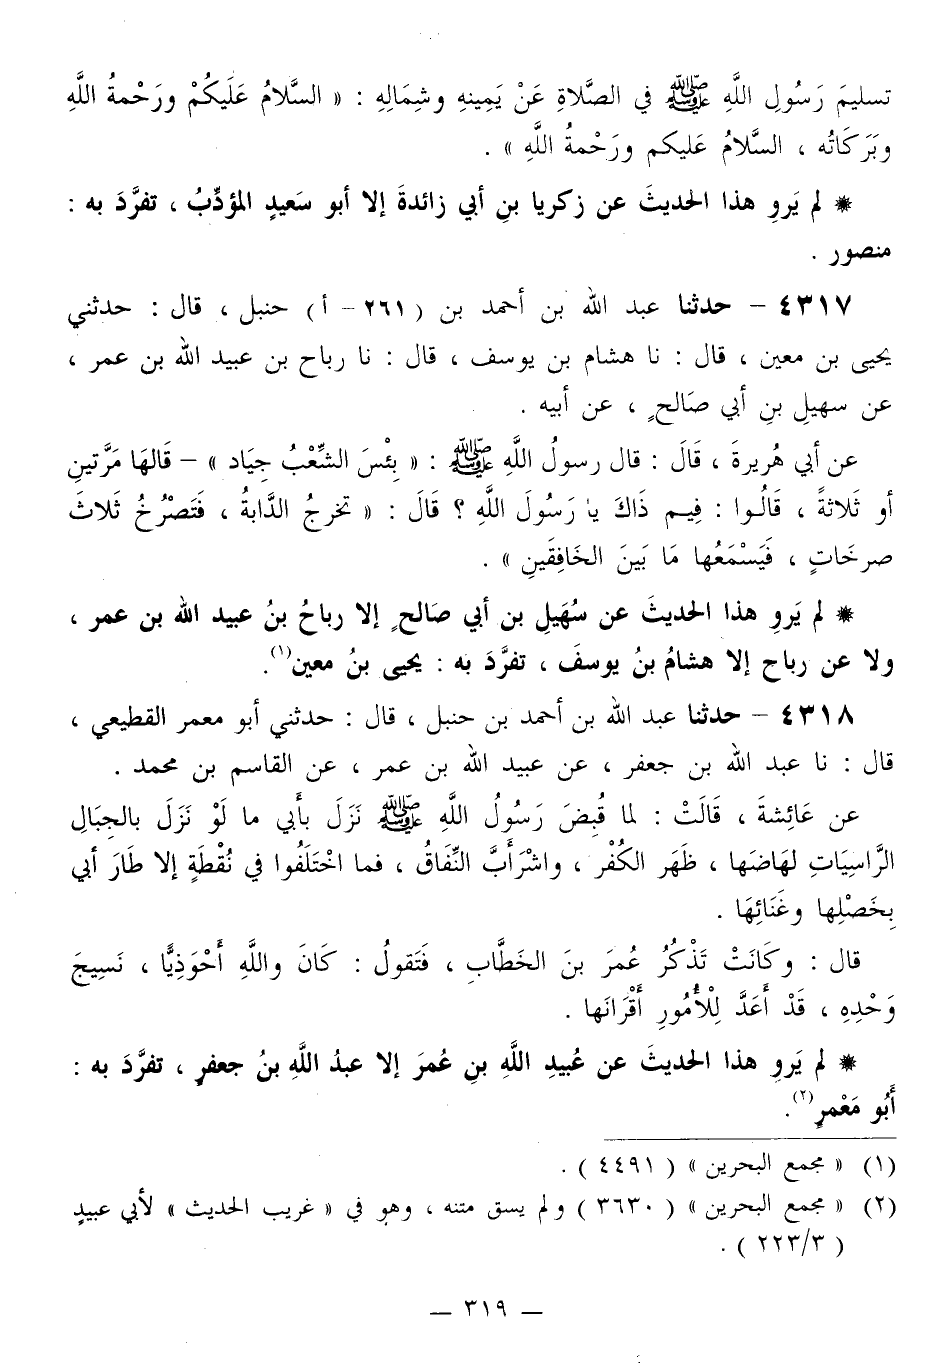 تسليمَ رَسُولِ اللَّهِ ﷺ في الصَّلاةِ عَنْ يَمِينهِ وشِمَالِهِ : « السَّلامُ عَلَيكُمْ ورَحْمةُ اللَّهِ
وبَرَكَاتُه ، السَّلامُ عَليكم ورَحْمةُ اللَّهِ » .
* لم يَروِ هذا الحديثَ عن زكريا بنِ أبي زائدةَ إلا أبو سَعيدٍ المؤدِّبُ ، تفرَّدَ به :
منصور .
٤٣١٧ – حدثنا عبد الله بن أحمد بن ( ٢٦١ – أ ) حنبل ، قال : حدثني
يحيى بن معين ، قال : نا هشام بن يوسف ، قال : نا رباح بن عبيد الله بن عمر ،
عن سهيلِ بنِ أبي صَالحٍ ، عن أبيه .
عن أبي هُريرةَ ، قَالَ : قال رسولُ اللَّهِ ﷺ : « بِئْسَ الشِّعْبُ جِيَاد » – قَالهَا مَرَّتينِ
أو ثَلاثةً ، قَالُـوا : فِيـم ذَاكَ يا رَسُولَ اللَّهِ ؟ قَالَ : « تخرجُ الدَّابةُ ، فَتَصْرُخُ ثَلاثَ
صرخَاتٍ ، فَيَسْمَعُها مَا بَينَ الخَافِقَينِ » .
* لم يَروِ هذا الحديثَ عن سُهَيلِ بن أبي صَالحٍ إلا رباحُ بنُ عبيد الله بن عمر ،
ولا عن رباح إلا هشامُ بنُ يوسفَ ، تفرَّدَ به : يحيى بنُ معين(١).
٤٣١٨ – حدثنا عبد الله بن أحمد بن حنبل ، قال : حدثني أبو معمر القطيعي ،
قال : نا عبد الله بن جعفر ، عن عبيد الله بن عمر ، عن القاسم بن محمد .
عن عَائِشةَ ، قَالَتْ : لما قُبِضَ رَسُولُ اللَّهِ ﷺ نَزَلَ بأَبي ما لَوْ نَزَلَ بالجِبَالِ
الرَّاسِيَاتِ لهَاضَها ، ظَهَر الكُفْر ، واشْرأَبَّ النِّفَاقُ ، فما اخْتَلَفُوا في نُقْطَةٍ إلا طَارَ أبي
بِخَصْلِها وغَنَائِهَا .
قال : وكَانَتْ تَذْكُرُ عُمرَ بنَ الخطَّابِ ، فَتَقولُ : كَانَ واللَّهِ أَحْوَذِيًّا ، نَسِيجَ
وَحْدِهِ ، قَدْ أَعَدَّ لِلْأُمُورِ أَقْرَانَها .
* لم يَروِ هذا الحديثَ عن عُبيدِ اللَّهِ بنِ عُمرَ إلا عبدُ اللَّهِ بنُ جعفرٍ ، تفرَّدَ به :
أَبُو مَعْمرٍ(٢).
(١) « مجمع البحرين » ( ٤٤٩١ ) .
(٢) « مجمع البحرين » ( ٣٦٣٠ ) ولم يسق متنه ، وهو في « غريب الحديث » لأبي عبيدٍ
( ٢٢٣/٣ ) .
— ٣١٩ —